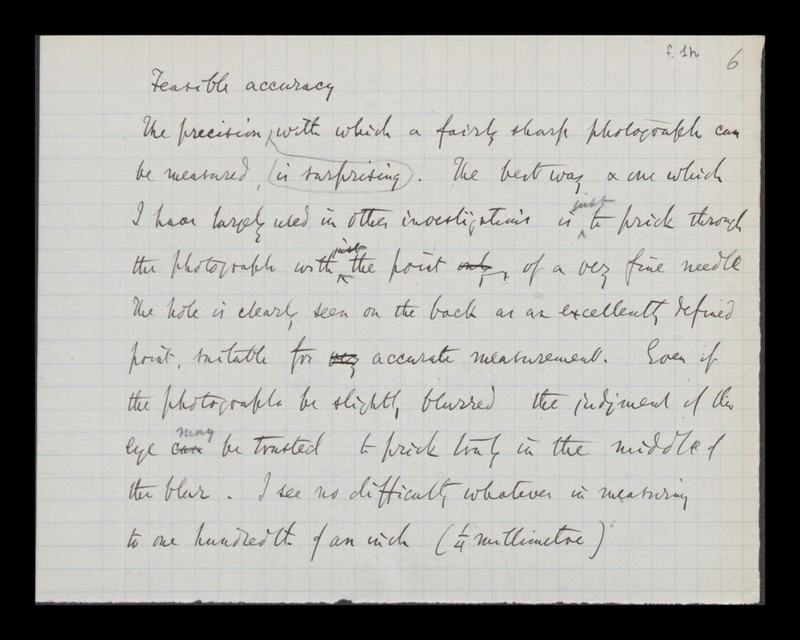 f. 1r
6
Feasible accuracy
The precision, with which a fairly sharp photograph can
be measured, is surprising. The best way & one which
just
I have largely used in other investigations is to prick through
just
the photograph with the point only, of a very fine needle
The hole is clearly seen on the back as an excellently defined
point, suitable for very accurate measurement. Even if
the photograph be slightly blurred the judgment of the
may
eye can be trusted to prick truly in the middle of
the blur. I see no difficulty whatever in measuring
to one hundredth of an inch (¼ millimetre)